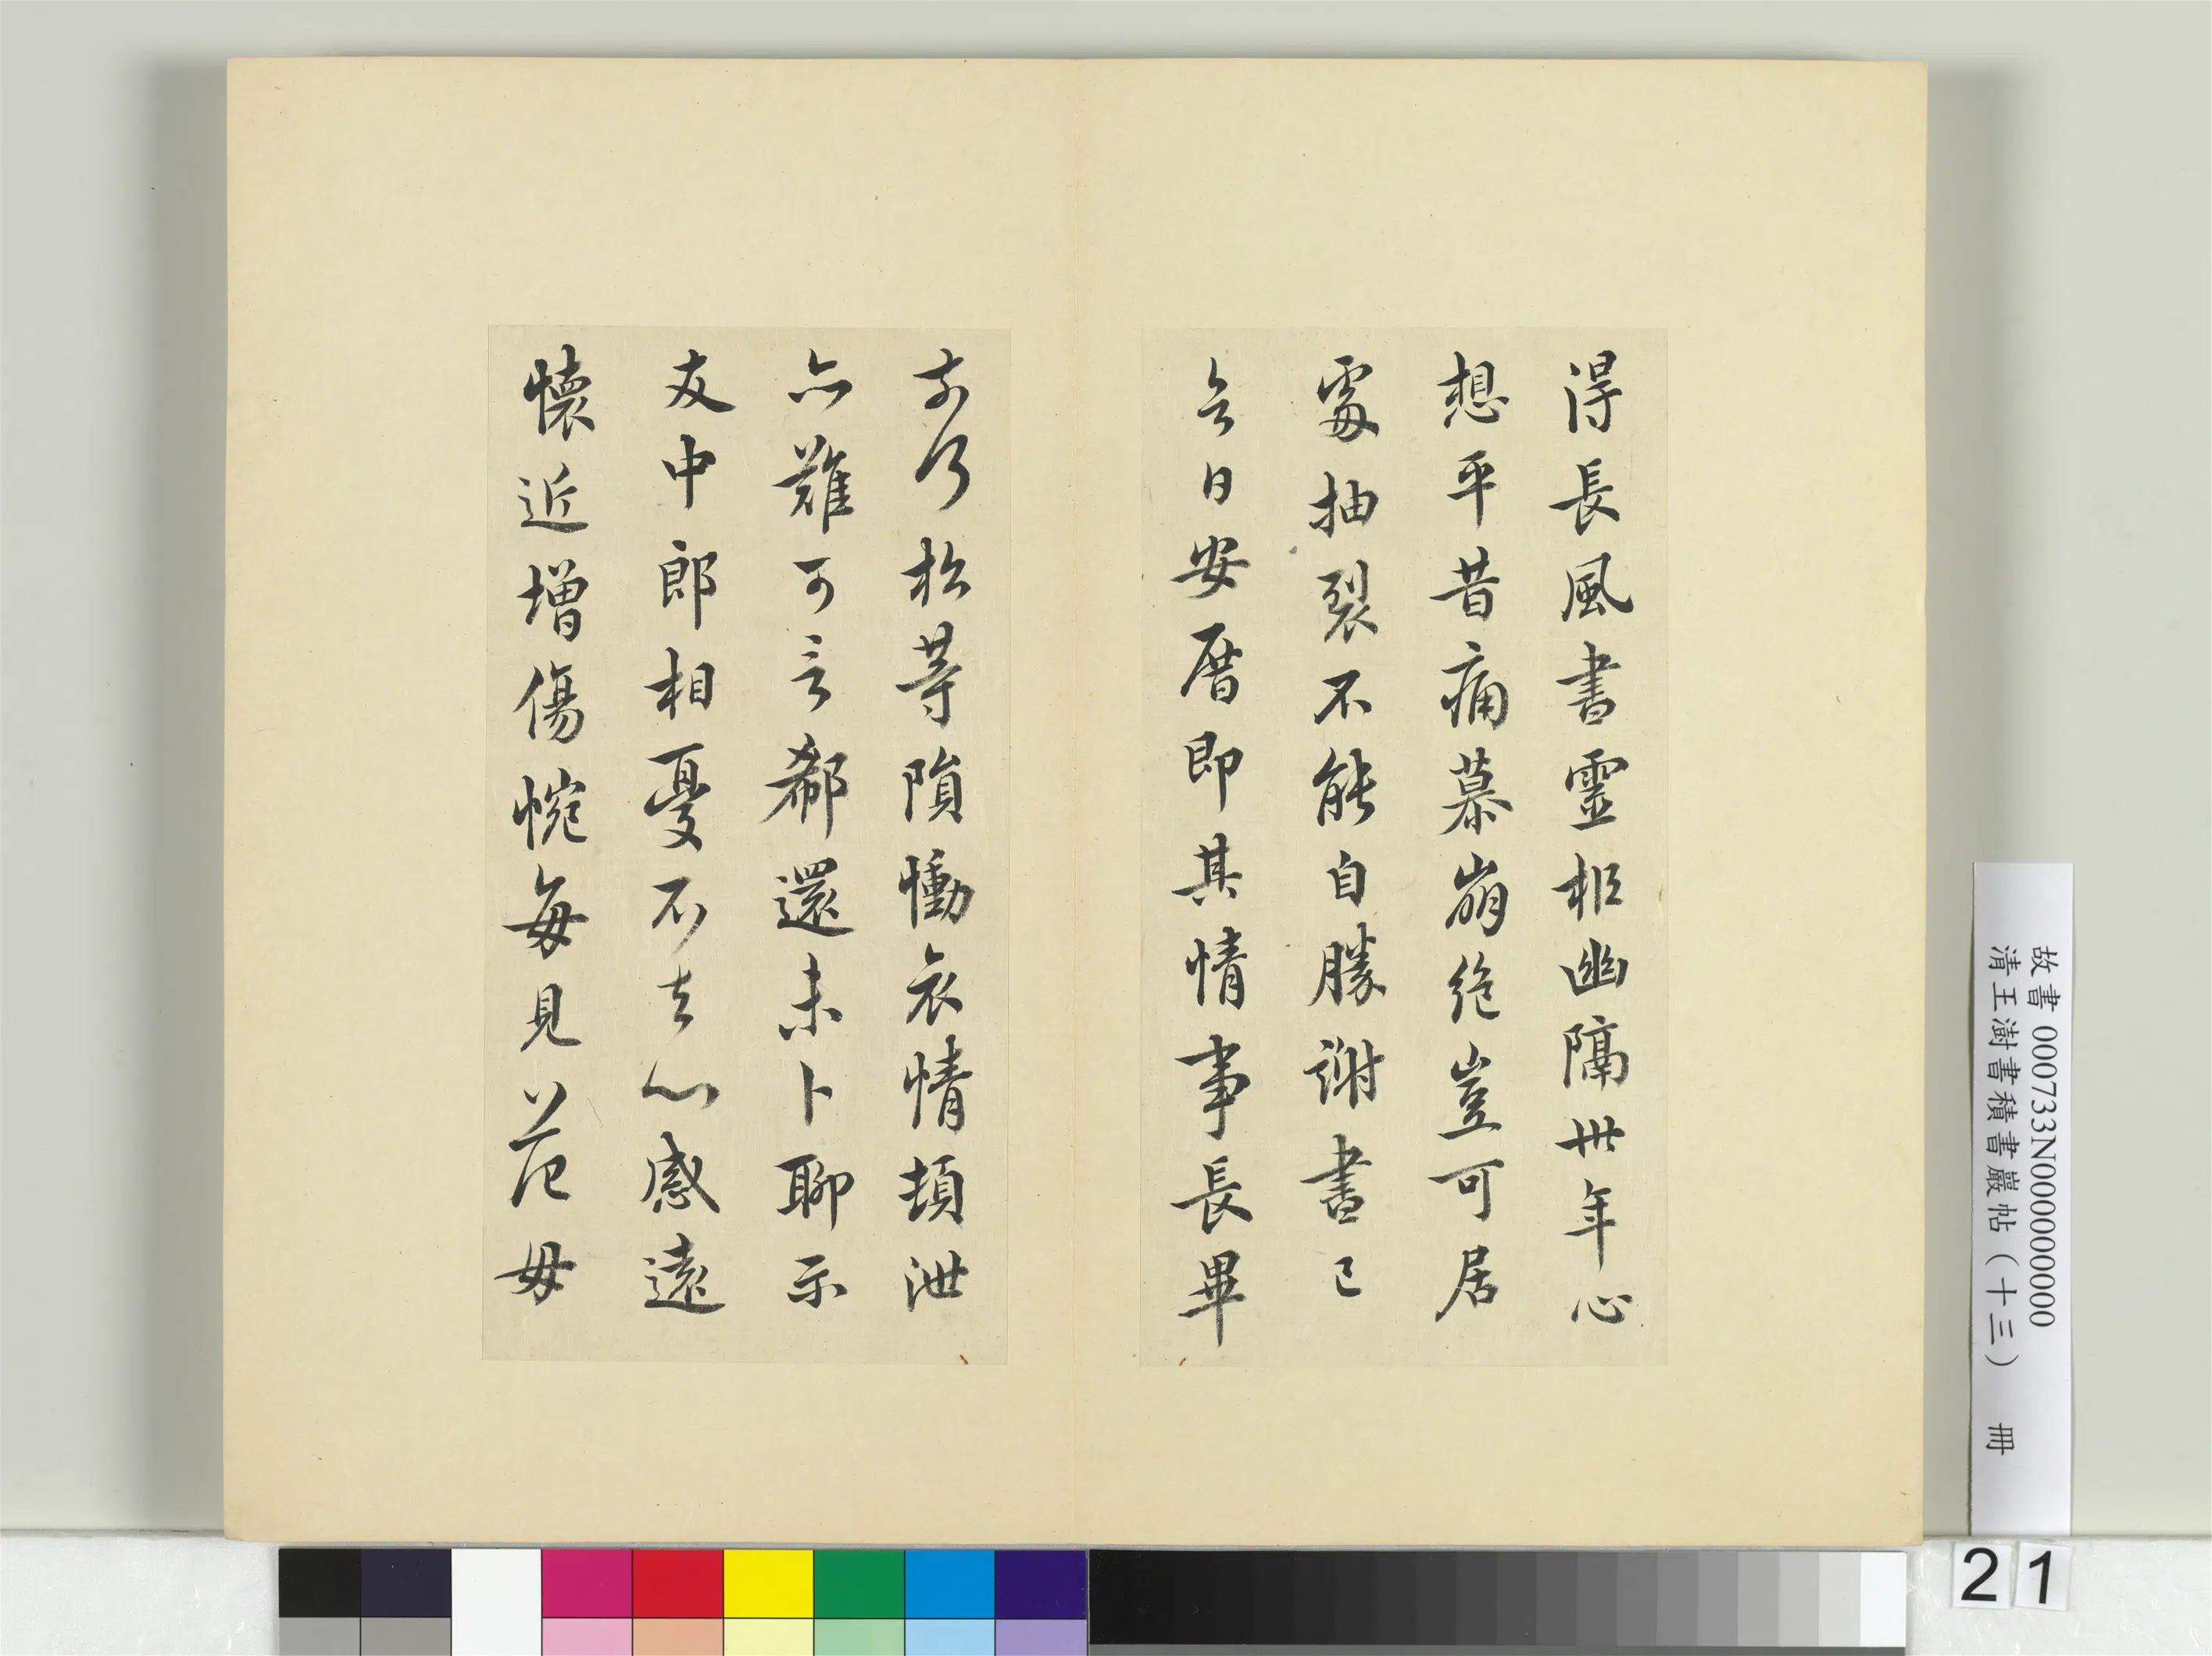 得長風書靈柩幽隔卅年心
想平昔痛慕崩絕豈可居
處抽裂不能自勝謝書已
令日安厝即其情事長畢
等隕慟哀情頓泄
亦難可言郗還未卜聊示
友中郎相憂不去心感遠
懷近增傷惋每見范母
故書 000733N000000000
清王澍書積書巖帖(十三) 冊
21